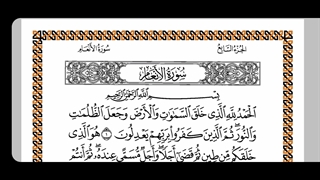 الجزء السابع سورة الأنعام
سورة الأنعام
بسم الله الرحمن الرحيم
الحمد لله الذي خلق السموات والأرض وجعل الظلمات
والنور ثم الذين كفروا بربهم يعدلون ١ هو الذي
خلقكم من طين ثم قضى أجلا وأجل مسمى عنده ثم أنتم